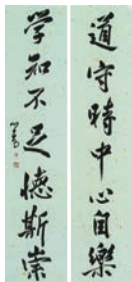 道守時中心自樂
学知不足德斯崇